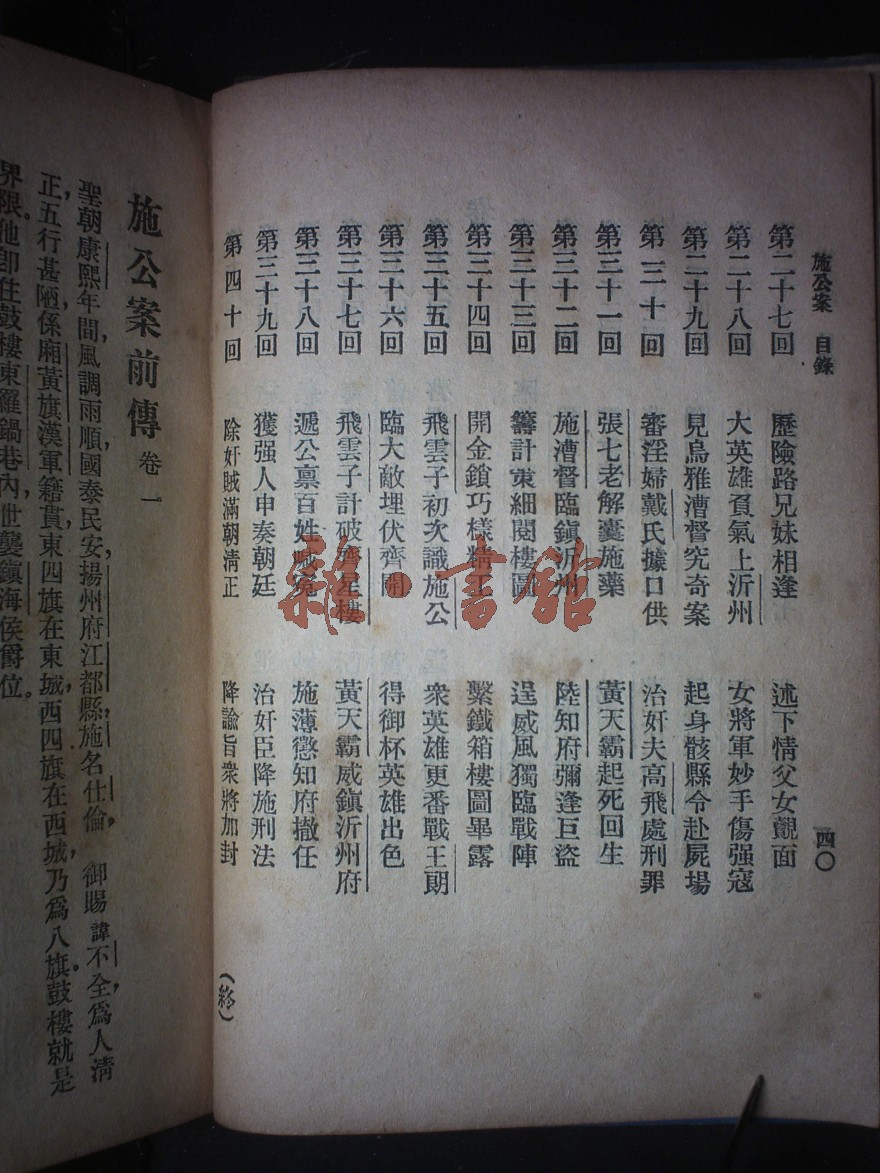 施公案 目錄 四〇
第二十七回 歷險路兄妹相逢 述下情父女覿面
第二十八回 大英雄負氣上沂州 女將軍妙手傷强寇
第二十九回 見烏雅漕督究奇案 起身骸縣令赴屍場
第三十回 審淫婦戴氏據口供 治奸夫高飛處刑罪
第三十一回 張七老解囊施藥 黃天霸起死回生
第三十二回 施漕督臨鎮沂州 陸知府彌逢巨盜
第三十三回 籌計策細閱樓圖 逞威風獨臨戰陣
第三十四回 開金鎖巧樣精工 繫鐵箱樓圖畢露
第三十五回 飛雲子初次識施公 衆英雄更番戰王朗
第三十六回 臨大敵埋伏齊開 得御杯英雄出色
第三十七回 飛雲子計破齊星樓 黃天霸威鎮沂州府
第三十八回 遞公禀百姓喊冤 施薄懲知府撤任
第三十九回 獲强人申奏朝廷 治奸臣降施刑法
第四十回 除奸賊滿朝清正 降諭旨衆將加封
(終)
雜·書館
施公案前傳 卷一
聖朝康熙年間,風調雨順,國泰民安,揚州府江都縣,施名仕倫,御賜諱不全,爲人清
正,五行甚陋,係廂黃旗漢軍籍貫,東四旗在東城,西四旗在西城,乃爲八旗。鼓樓就是
界限。他卽住鼓樓東羅鍋巷內,世襲鎮海侯爵位。